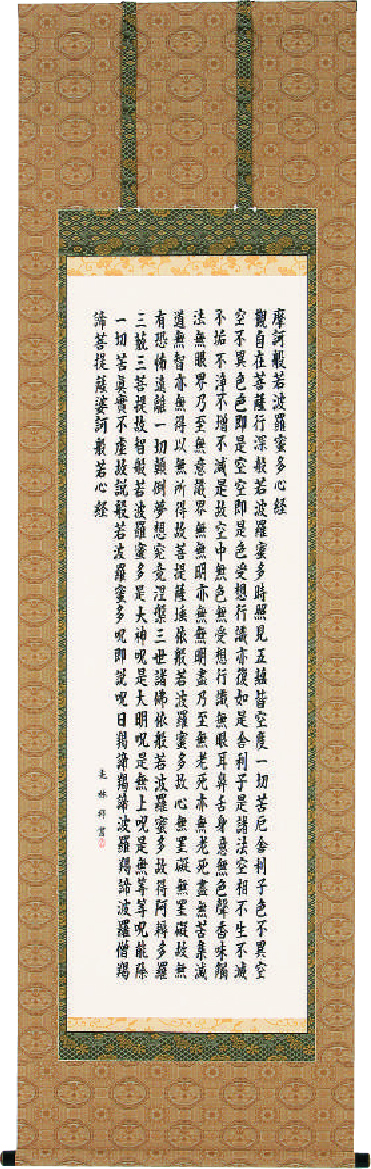 摩訶般若波羅蜜多心経
觀自在菩薩行深般若波羅蜜多時照見五蘊皆空度一切苦厄舎利子色不異空
空不異色色即是空空即是色受想行識亦復如是舎利子是諸法空相不生不滅
不垢不淨不増不減是故空中無色無受想行識無眼耳鼻舌身意無色聲香味觸
法無眼界乃至無意識界無無明亦無無明盡乃至無老死亦無老死盡無苦集滅
道無智亦無得以無所得故菩提薩埵依般若波羅蜜多故心無罣礙無罣礙故無
有恐怖遠離一切顛倒夢想究竟涅槃三世諸佛依般若波羅蜜多故得阿耨多羅
三藐三菩提故智般若波羅蜜多是大神呪是大明呪是無上呪是無等等呪能除
一切苦真實不虚故説般若波羅蜜多呪即説呪曰羯諦羯諦波羅羯諦波羅僧羯
諦菩提薩婆訶般若心経